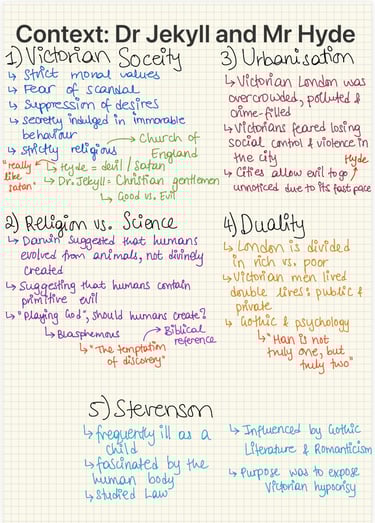 Context: Dr Jekyll and Mr Hyde
1) Victorian Soceity
↳ Strict moral values
↳ Fear of scandal
↳ Suppression of desires
↳ secretly indulged in immorable
behaviour
↳ Strictly religious
→ Church of
England
"really
like
satan"
↳ Hyde = devil / Satan
↳ Dr. Jekyll = Christian gentlemen
↳ Good vs. Evil
2) Religion vs. Science
↳ Darwin suggested that humans
evolved from animals, not divinely
created
↳ Suggesting that humans contain
primitive evil
↳ "Playing God", should humans create?
↳ Blasphemous
→ Biblical
reference
↳ "The temptation
of discovery"
3) Urbanisation
↳ Victorian London was
overcrowded, polluted &
crime-filled
↳ Victorians feared losing
social control & violence in
the city
Hyde
↳ Cities allow evil to go
unnoticed due to its fast pace
4) Duality
↳ London is divided
in rich vs. poor
↳ Victorian men lived
double lives: public &
private
↳ Gothic & psychology
↳ "Man is not
truly one, but
truly two"
5) Stevenson
↳ frequently ill as a
child
↳ fascinated by the
human body
↳ studied Law
↳ Influenced by Gothic
Literature & Romanticism
↳ Purpose was to expose
Victorian hypocrisy